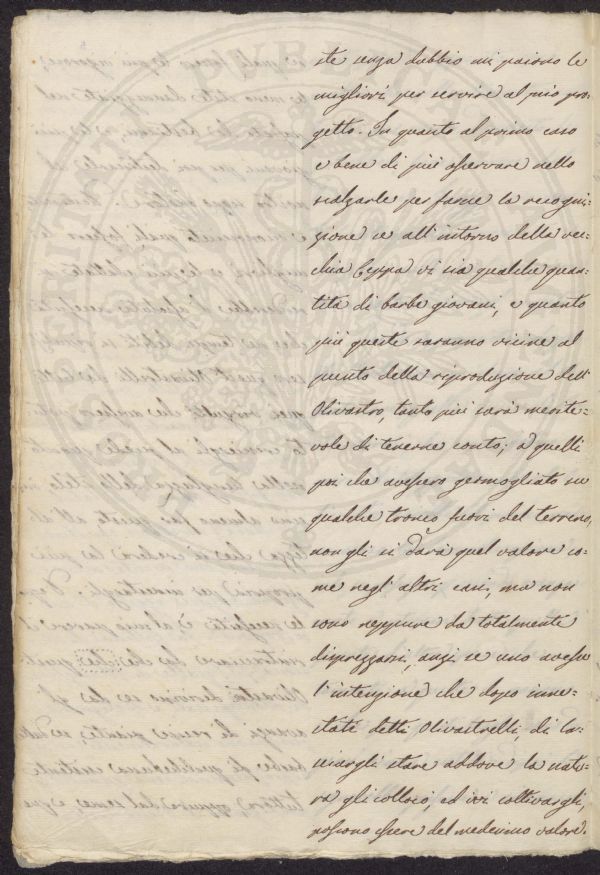 ste senza dubbio mi paiono le
migliori per servire al mio pro-
getto. In quanto al primo caso
e bene di più osservare nello
scalzarle per farne la recogni-
zione se all'intorno della vec-
chia Ceppa vi sia qualche quan-
tità di barbe giovani, e quanto
più queste saranno vicine al
punto della riproduzione dell'
Olivastro, tanto più sarà merite-
vole di tenerne conto; a quelli
poi che avessero germogliato su
qualche tronco fuori del terreno,
non gli si darà quel valore co-
me negl'altri casi, ma non
sono neppure da totalmente
disprezzarsi, anzi se uno avesse
l'intenzione che dopo inne-
stati detti Olivastrelli, di la-
sciargli stare addove la natu-
ra gli collocò, ed ivi coltivargli,
possono essere del medesimo valore.